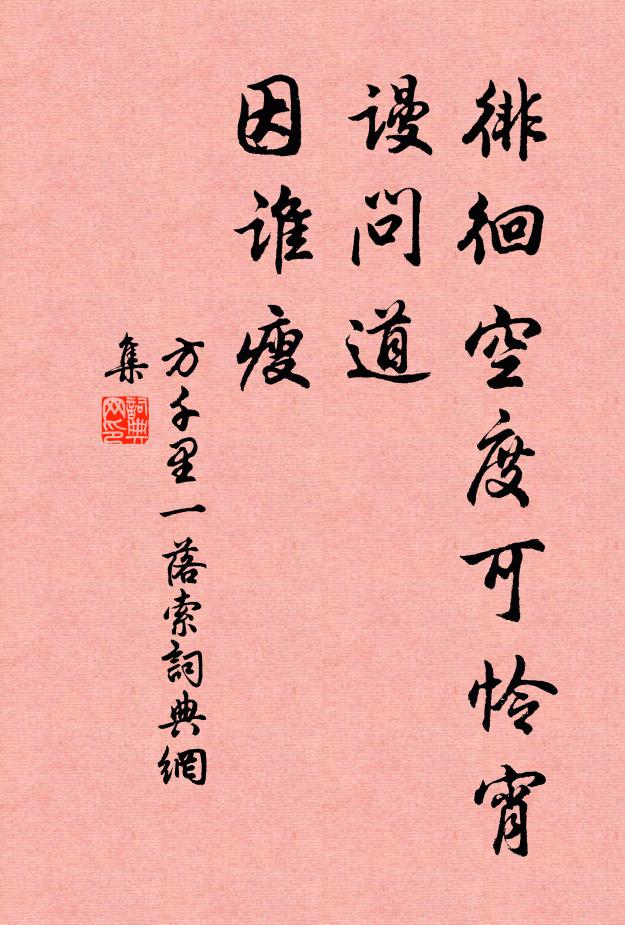 徘徊空度可怜宵
谩问道
因谁瘦
方千里一落索詞典網
集
詞典
网印